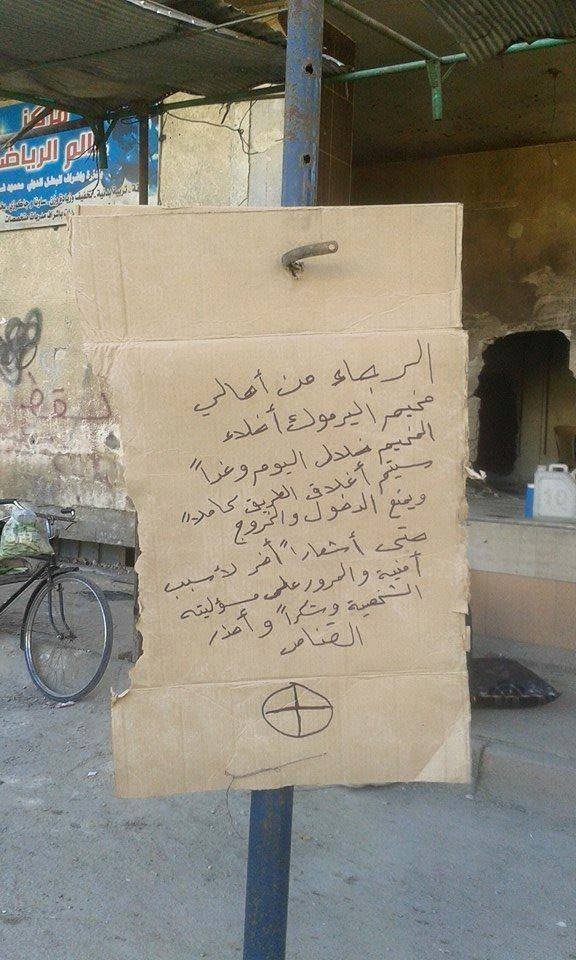 عالم الرياضة
الرجاء من أهالي
مخيم اليرموك أخلاء
المخيم خلال اليوم وغداً
سيتم أغلاق الطريق كاملاً
ويمنع الدخول والخروج
حتى أشعاراً أخر لأسبب
أمنية والمرور على مسؤليته
الشخصية وشكراً وأحذر
القناص